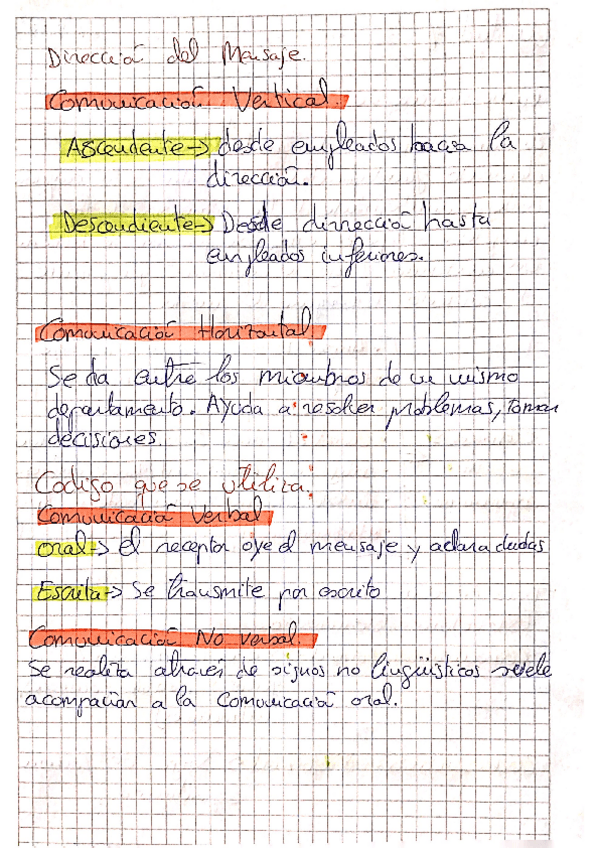 Dirección del Mensaje.
Comunicación Vertical.
Ascendente → desde empleados hacia la
dirección.
Descendiente → Desde dirrección hasta
empleados inferiores.
Comunicación Horizontal.
Se da entre los miembros de un mismo
departamento. Ayuda a resolver problemas, tomar
decisiones.
Codigo que se utiliza:
Comunicación Verbal
Oral → El receptor oye el mensaje y aclara dudas
Escrita → Se transmite por escrito
Comunicación No verbal.
Se realiza através de signos no lingüísticos suele
acompañar a la comunicación oral.